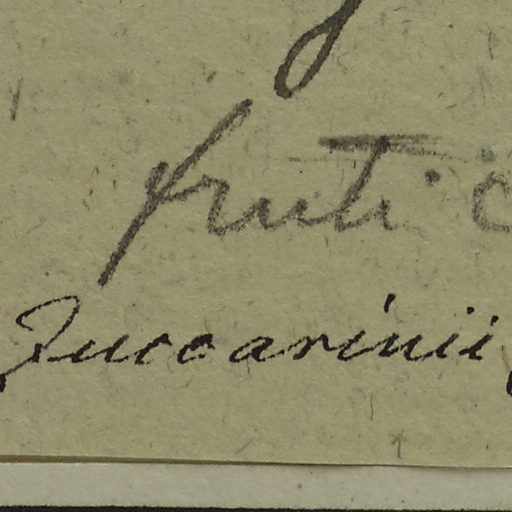 fruti
Zuccarinii